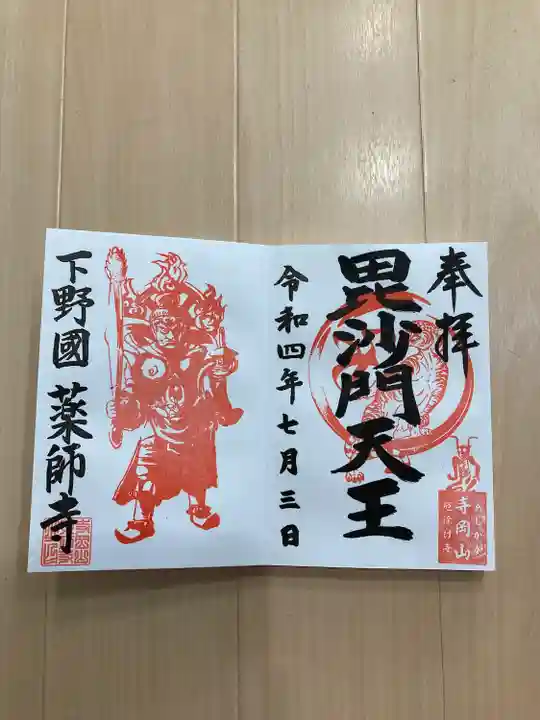 奉拝
毘沙門天王
寺岡山
厄除け寺
令和四年七月三日
下野國 薬師寺